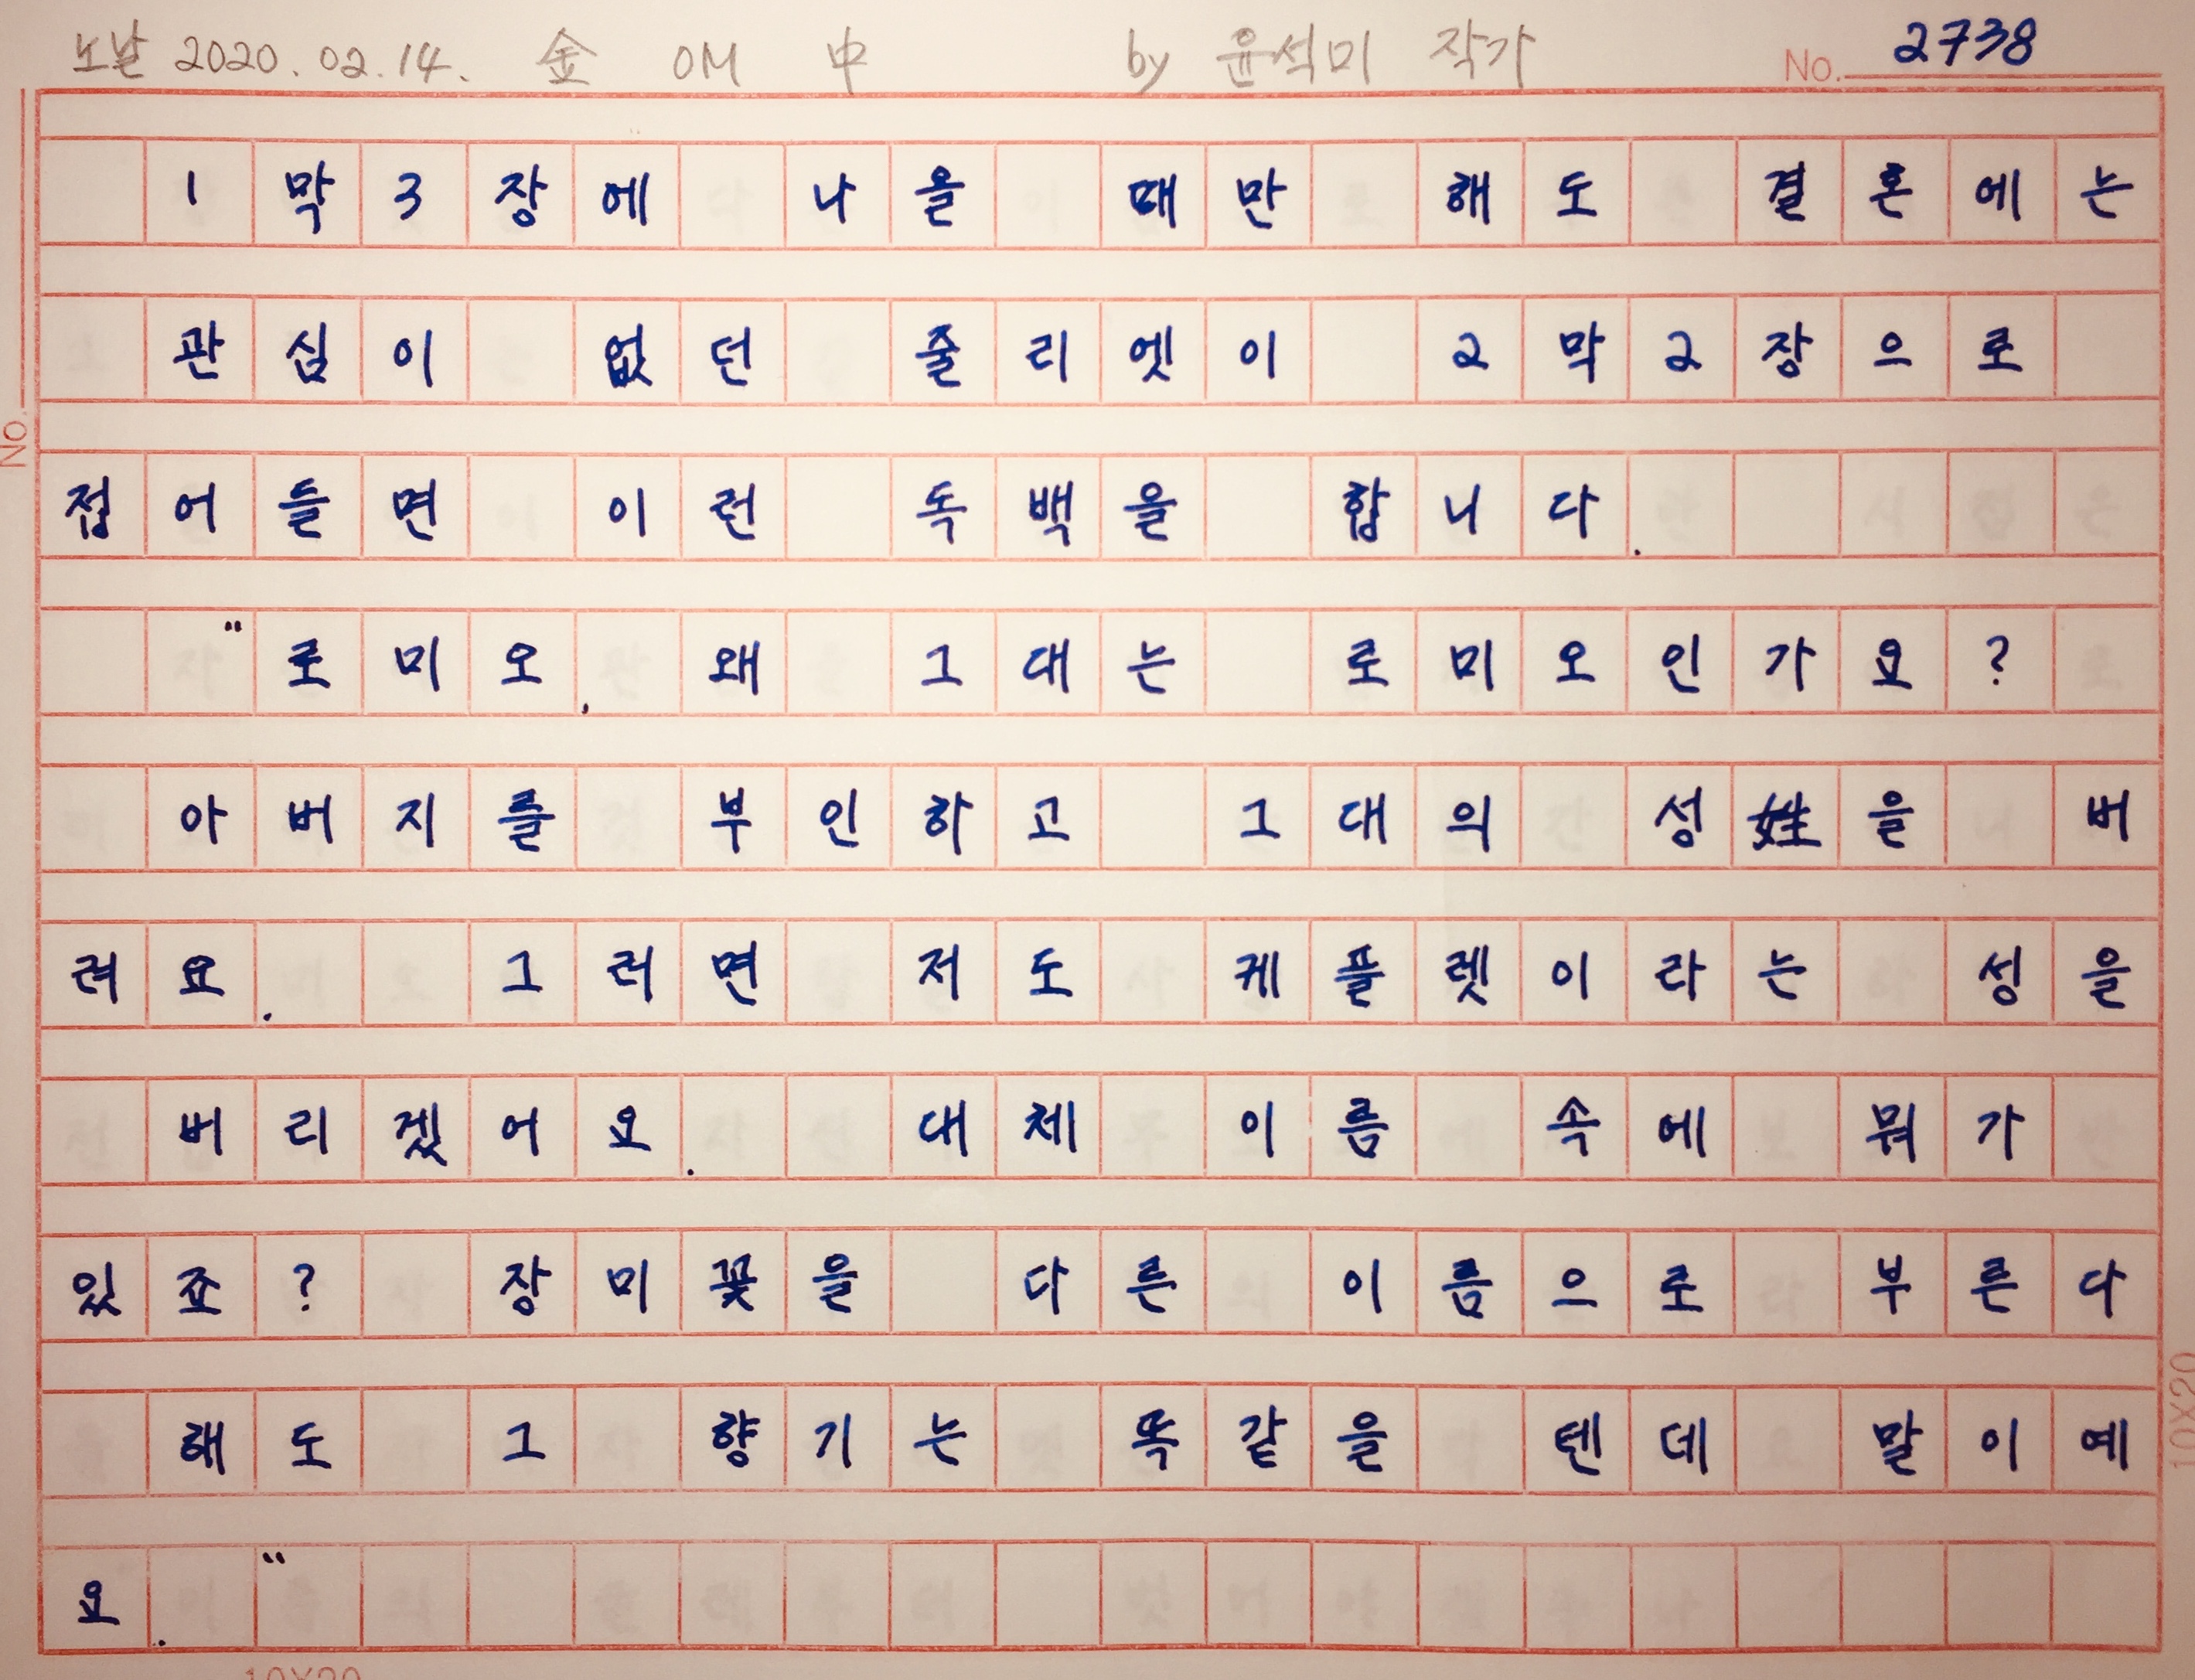 노날 2020. 02. 14. 金 OM 中 by 윤석미 작가 No. 2738
1막3장에 나올 때만 해도 결혼에는
관심이 없던 줄리엣이 2막2장으로
접어들면 이런 독백을 합니다.
"로미오, 왜 그대는 로미오인가요?
아버지를 부인하고 그대의 성姓을 버
려요. 그러면 저도 케플렛이라는 성을
버리겠어요. 대체 이름 속에 뭐가
있죠? 장미꽃을 다른 이름으로 부른다
해도 그 향기는 똑같을 텐데 말이예
요."
No.
10X20
10X20